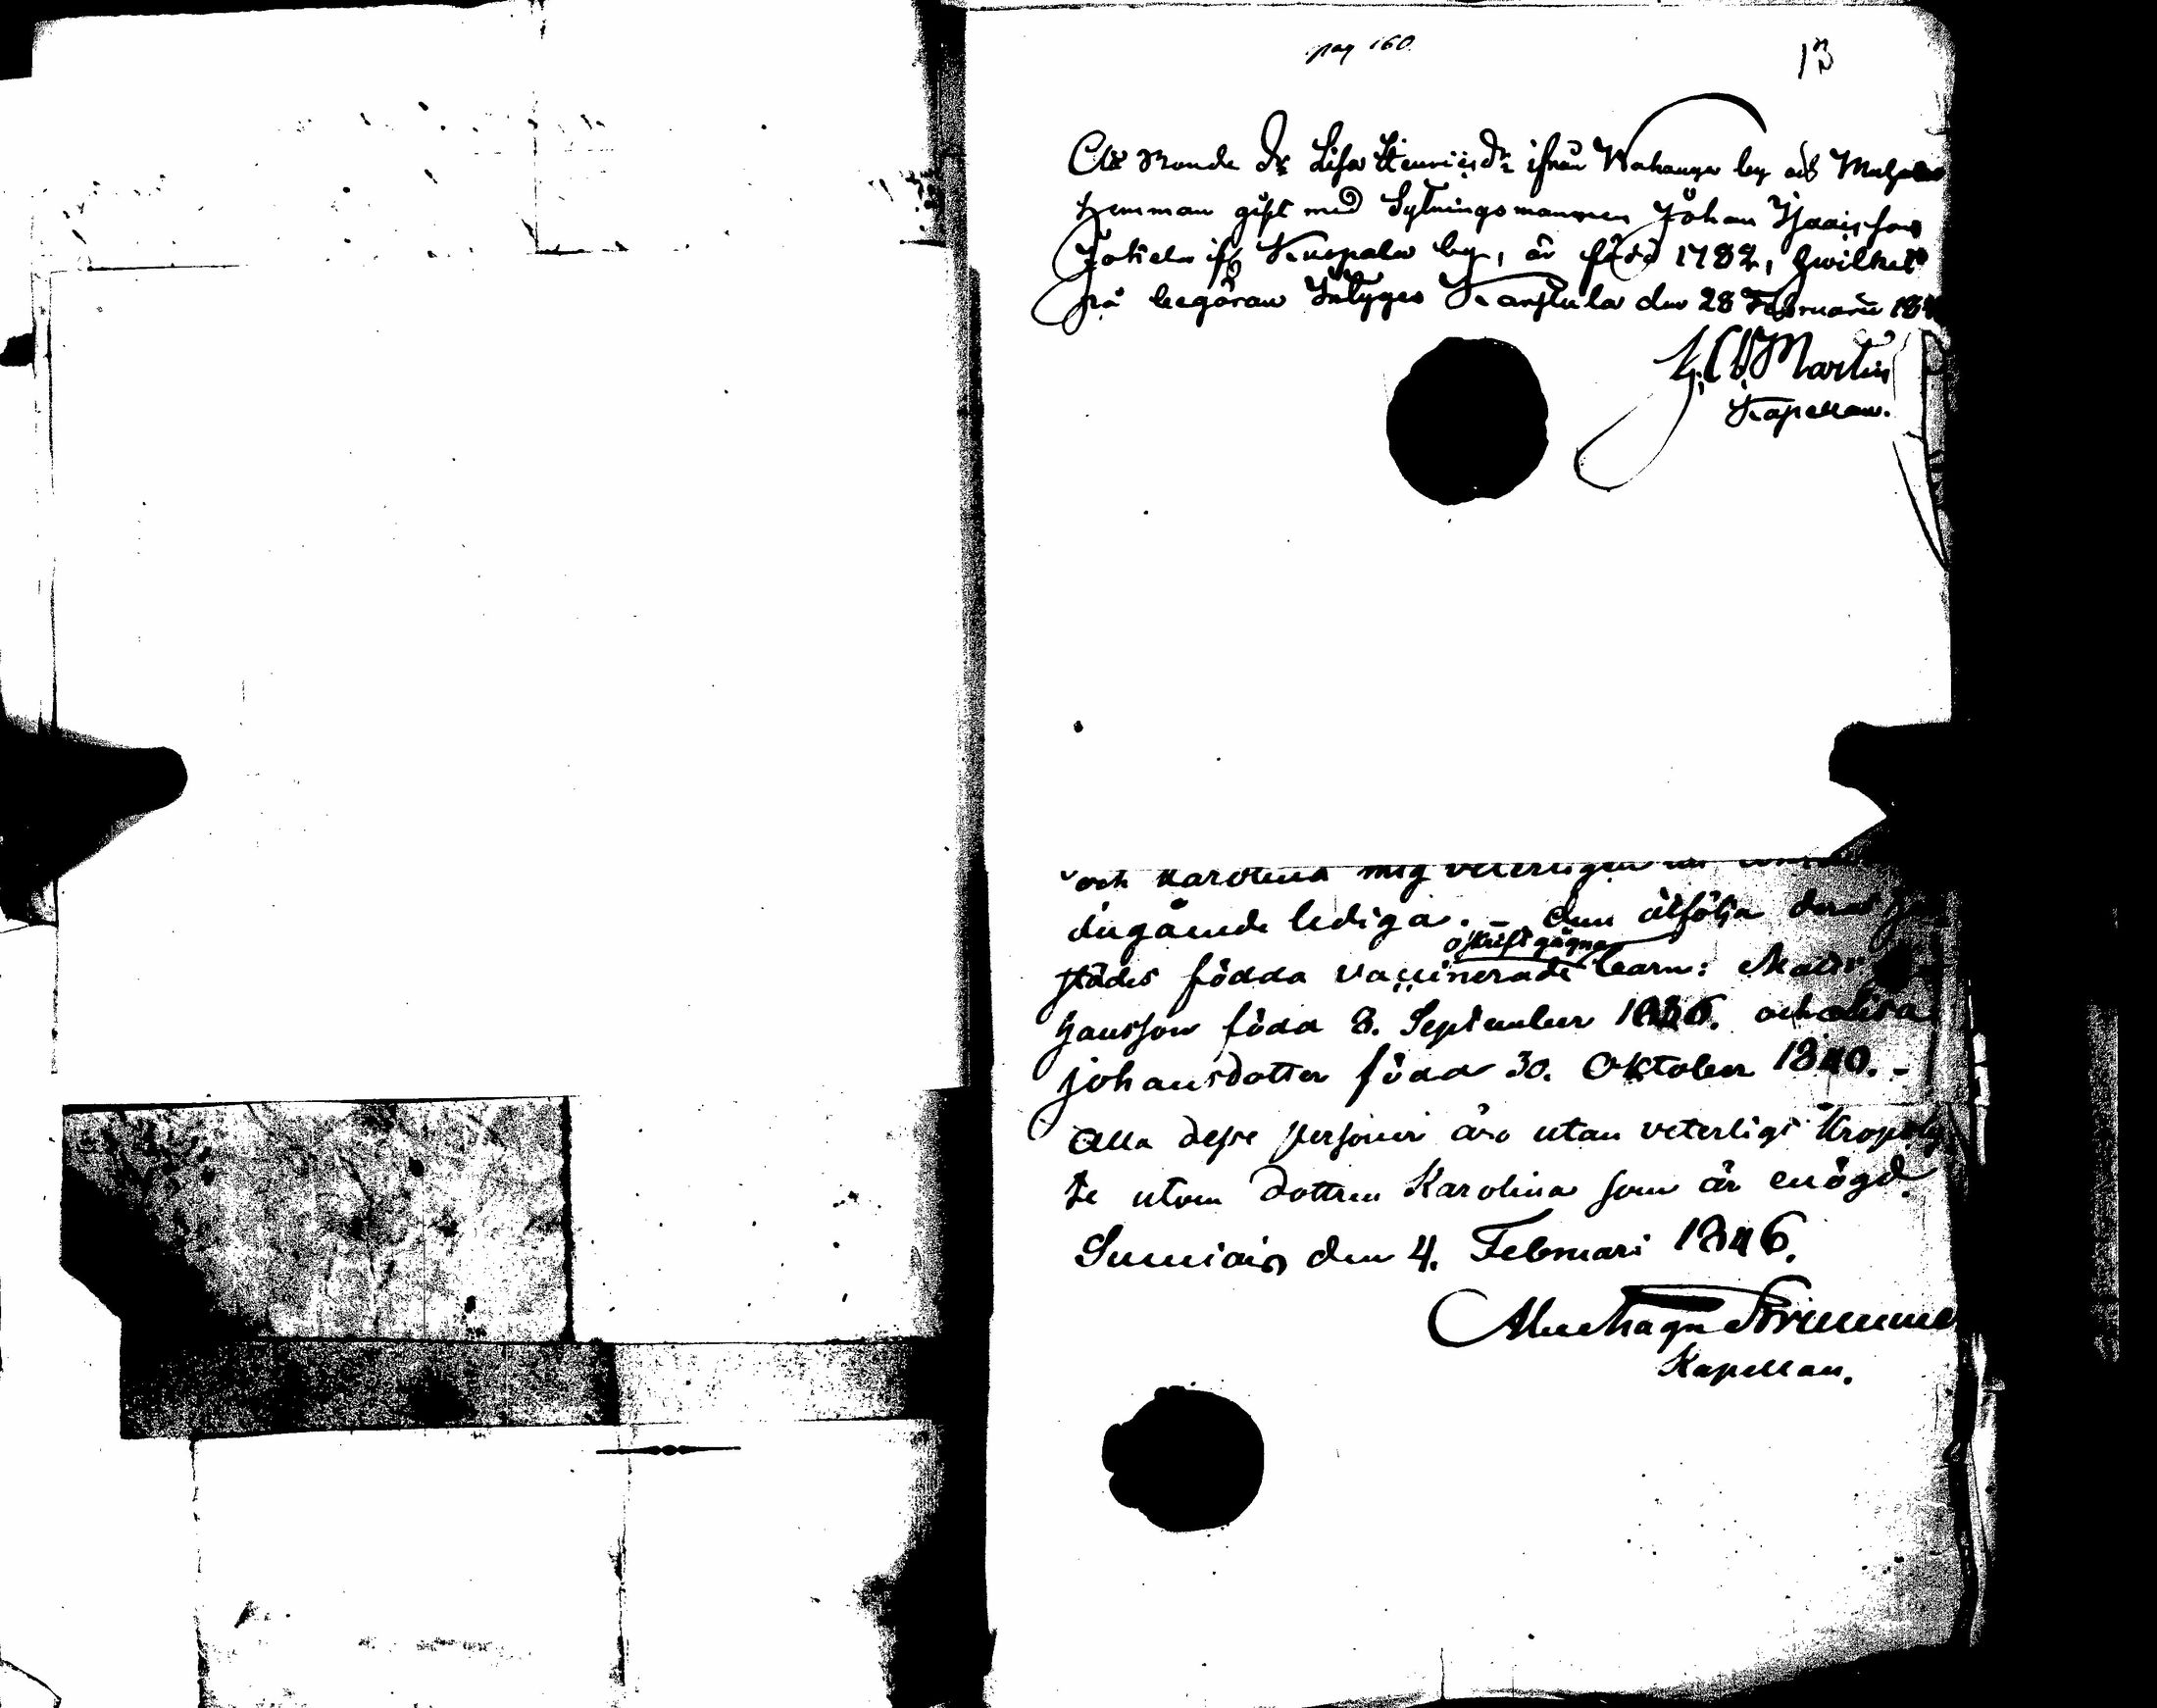 pag 160.
13
Att Bonde Dr Lisa Henricsdr ifrån Wahanga by och
Hemman gift med Sytningsmannen Johan Isaacsson
Jokela ifr Kuopala by, är född 1782, hwilket
på begäran Intygas Kanstula den 28 Februarii 184
Martin
Kapellan.
och Karolina mig veterligen
ingående lediga. – dem åtfölja deras
oskriftgägna
städes födda vaccinerade barn: Matts
Hansson född 8. September 1836. och Lisa
Johansdotter född 30. Oktober 1840. –
Alla desse personer äro utan veterligt kroply
te utom dottren Karolina som är enögd.
Sumiais den 4. Februari 1846.
Kapellan.